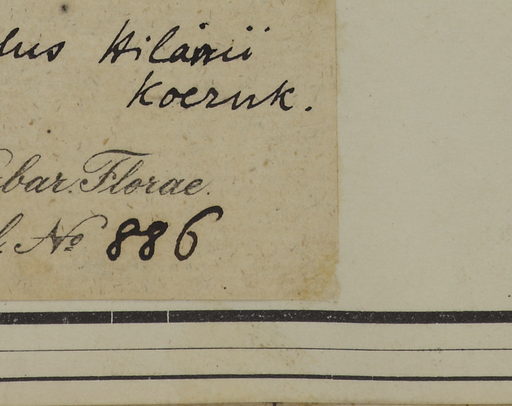 lus Hilárii
Koernk.
bar. Florae.
l. No 886